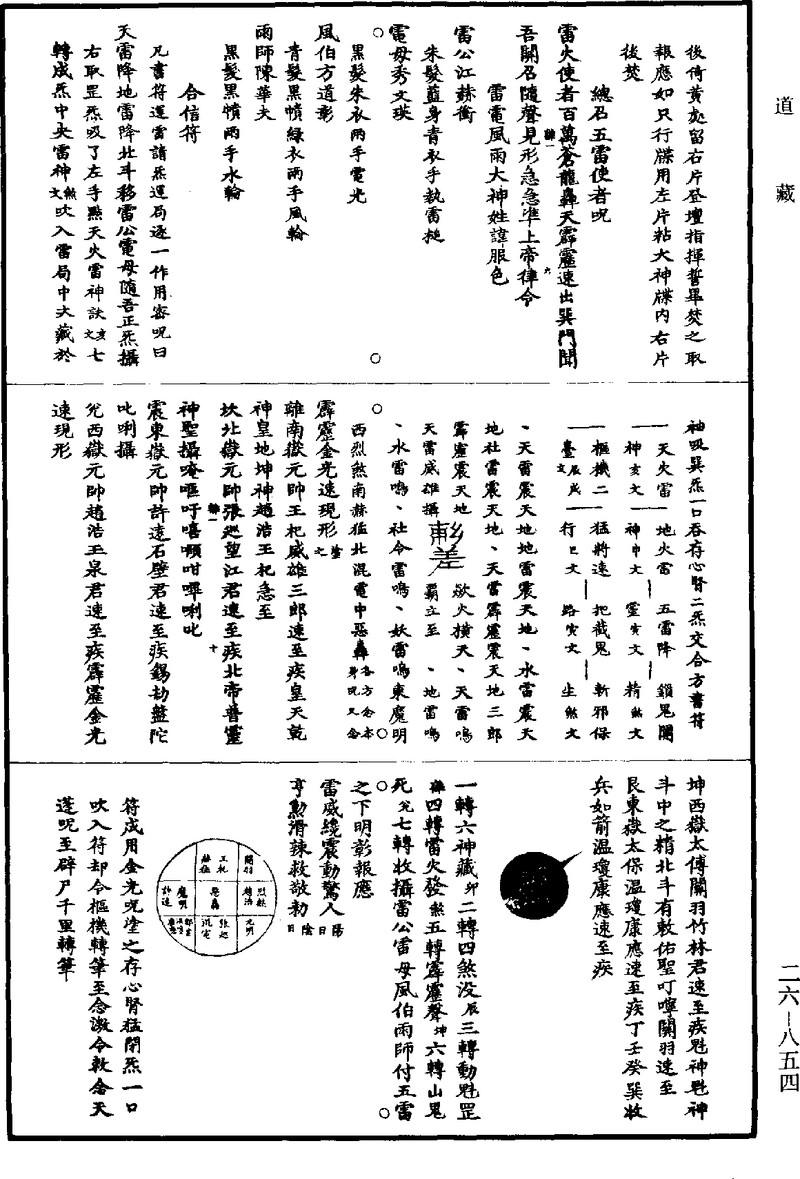 道藏
後倚黃處留右片登壇指揮誓畢焚之取
報應如只行牒用左片粘大神牒內右片
後焚
總召五雷使者呪
雷火使者百萬蒼龍轟天霹靂速出巽門聞
吾關召隨聲見形急急準上帝律令
雷電風雨大神姓諱服色
雷公江赫衝
朱髮藍身青衣手執雷槌
電母秀文瑛
黑髮朱衣兩手電光
風伯方道彰
青髮黑幘綠衣兩手風輪
雨師陳華夫
黑髮黑幘兩手水輪
合信符
凡書符運雷請炁運局逐一作用密呪曰
天雷降地雷降北斗移雷公電母隨吾正炁攝
右取罡炁吸了左手㸃天火雷神訣亥文七
轉成炁中央雷神煞文吹入雷局中大藏於
袖吸巽炁一口吞存心腎二炁交合方書符
天火雷 地火雷 五雷降 鎖鬼關
神亥文 神申文 靈寅文 精煞文
樞機二 猛將速 把截鬼 斬邪保
臺辰戌文 行巳文 路寅文 生煞文
、天雷震天地地雷震天地、水雷震天
地社雷震天地、天雷霹靂震天地三郎
霹靂震天地 歘火橫天、天雷鳴
天雷威雄攝 霸立至 、地雷鳴
、水雷鳴、社令雷鳴、妖雷鳴東魔明
西烈煞南赫猛北混電中惡轟各方念本身呪又念
霹靂金光速現形塗之
離南嶽元帥王杞威雄三郎速至疾皇天乾
神皇地坤神趙浩王杞急至
坎北嶽元帥張廵望江君速至疾北帝普靈
神聖攝唵嘔吁嘻嚬咁嗶唎叱
震東嶽元帥許遠石壁君速至疾錫劫盤陀
叱唎攝
兊西嶽元帥趙浩玉泉君速至疾霹靂金光
速現形
坤西嶽太傅關羽竹林君速至疾魁神魁神
斗中之精北斗有敕佑聖叮嚀關羽速至
艮東嶽太保溫瓊康應速至疾丁壬癸巽收
兵如箭溫瓊康應速至疾
一轉六神藏卯二轉四煞没辰三轉動魁罡
四轉雷火發煞五轉霹靂聲坤六轉山鬼
死兊七轉收攝雷公雷母風伯雨師付五雷
之下明彰報應
雷威纔震動驚人陽日
亨勳滑辣救敬勑陰日
關羽 王杞赫猛
烈煞趙浩 惡轟 魔明許遠
元明 張廵混電
符成用金光呪塗之存心腎猛閉炁一口
吹入符却令樞機轉筆至念激令敕念天
蓬呪至辟尸千里轉筆
二六—八五四